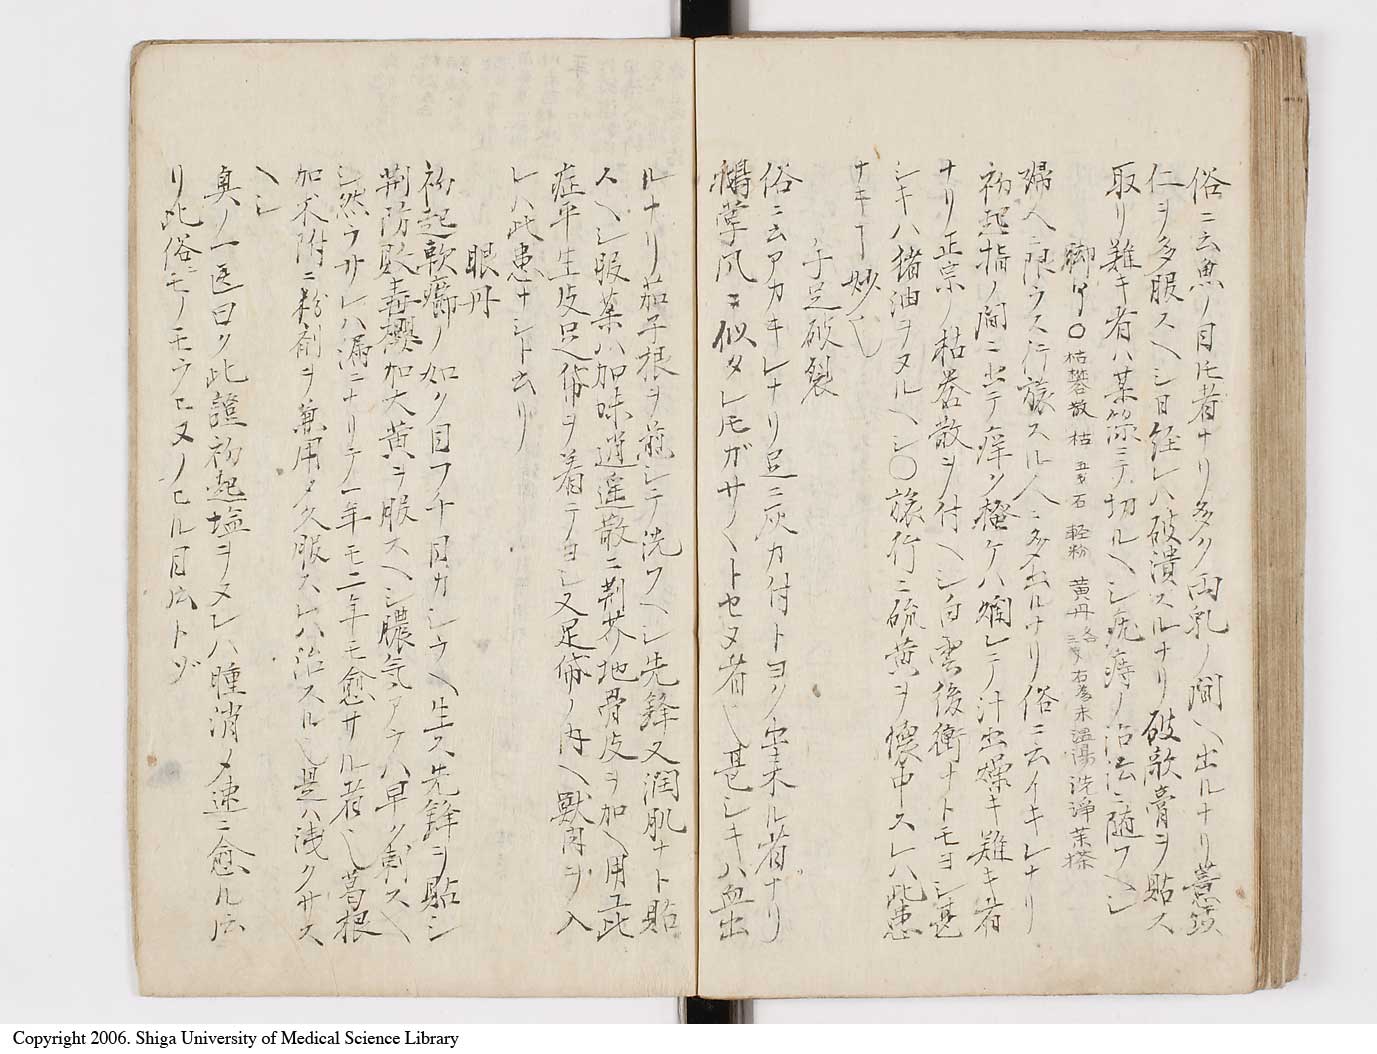 俗ニ云魚ノ目ト云者ナリ多クハ両乳ノ間ヘ出ルナリ薏苡
仁ヲ多服スヘシ日経レハ破潰スルナリ破敵膏ヲ貼ス
取リ難キ者ハ某篠ミテ切ルヘシ疣痔ノ治法ニ随フヘシ
脚丫〇枯礬散 枯 五戔 石 軽粉 黄丹 各三戔 右為末温湯洗淨
婦人ニ限ラス行旅スル人ニ多出ルナリ俗ニ云イキレナリ
初起指ノ間ニ出テ痒ク搔ケハ爛レテ汁出燥キ難キ者
ナリ正宗ノ枯礬散ヲ付ヘシ白雲後衝ナトモヨシ甚
シキハ猪油ヲヌルヘシ〇旅行ニ硫黄ヲ懐中スレハ此患
ナキヿ妙也
手足破裂
俗ニ云アカキレナリ足ニ灰カ付トヨク出来ル者ナリ
鵝掌風ニ似タレ𪜈ガサ〱トセヌ者也甚シキハ血出
ルナリ茄子根ヲ煎シテ洗フヘシ先鋒又潤肌ナト貼
スヘシ服薬ハ加味逍遥散ニ荊芥地骨皮ヲ加ヘ用工此
症平生皮足袋ヲ着テヨシ又足袋ノ内ヘ獣肉ヲ入
レハ此患ナシト云リ
眼丹
初起軟癤ノ如ク目フチ同カシウヘ生ス先鋒ヲ貼シ
荊防敗毒櫻加大黄ヲ服スヘシ膿気アラハ早ク刺スヘ
シ然ラサレハ漏ニナリテ一年モ二年モ愈サル者也葛根
加朮附ニ粉剤ヲ兼用メ久服スレハ治スル也是ハ洩クサス
ヘシ
奥ノ一医曰ク此證初起塩ヲヌレハ腫消メ速ニ愈ル㳒
リ此俗ニモノモラヒヌノヒル目㳒トゾ